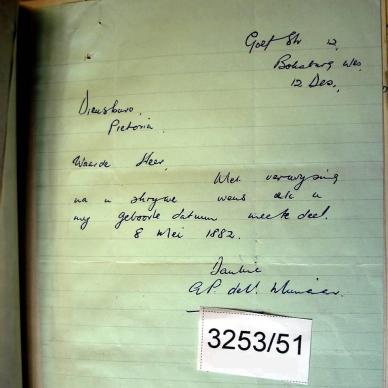 Golf Str 12,
Boksburg Wes.
12 Des.,
Diensburo,
Pretoria.
Waarde Heer,
Met verwysing
na u skrywe wens ek u
my geboorte datum mee te deel.
8 Mei 1882.
Dankie
3253/51